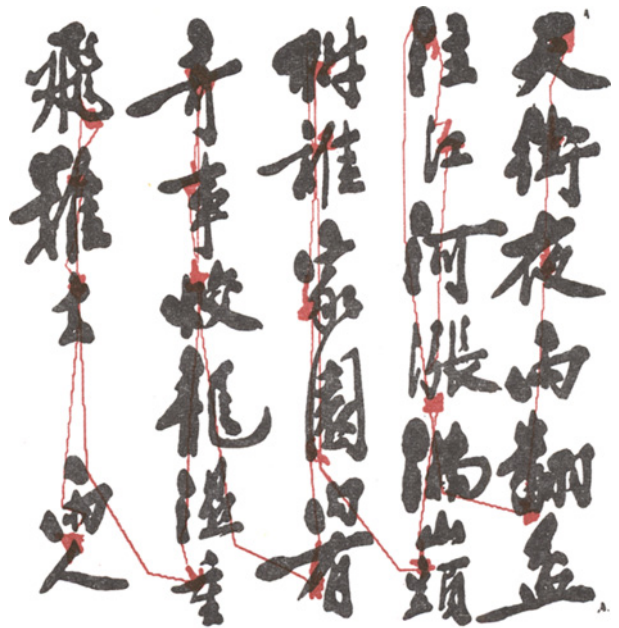 天衢夜雨翻盆
注江河漲滿山頭
樹誰家園內有
奇事蛟龍溼重
飛難去南人